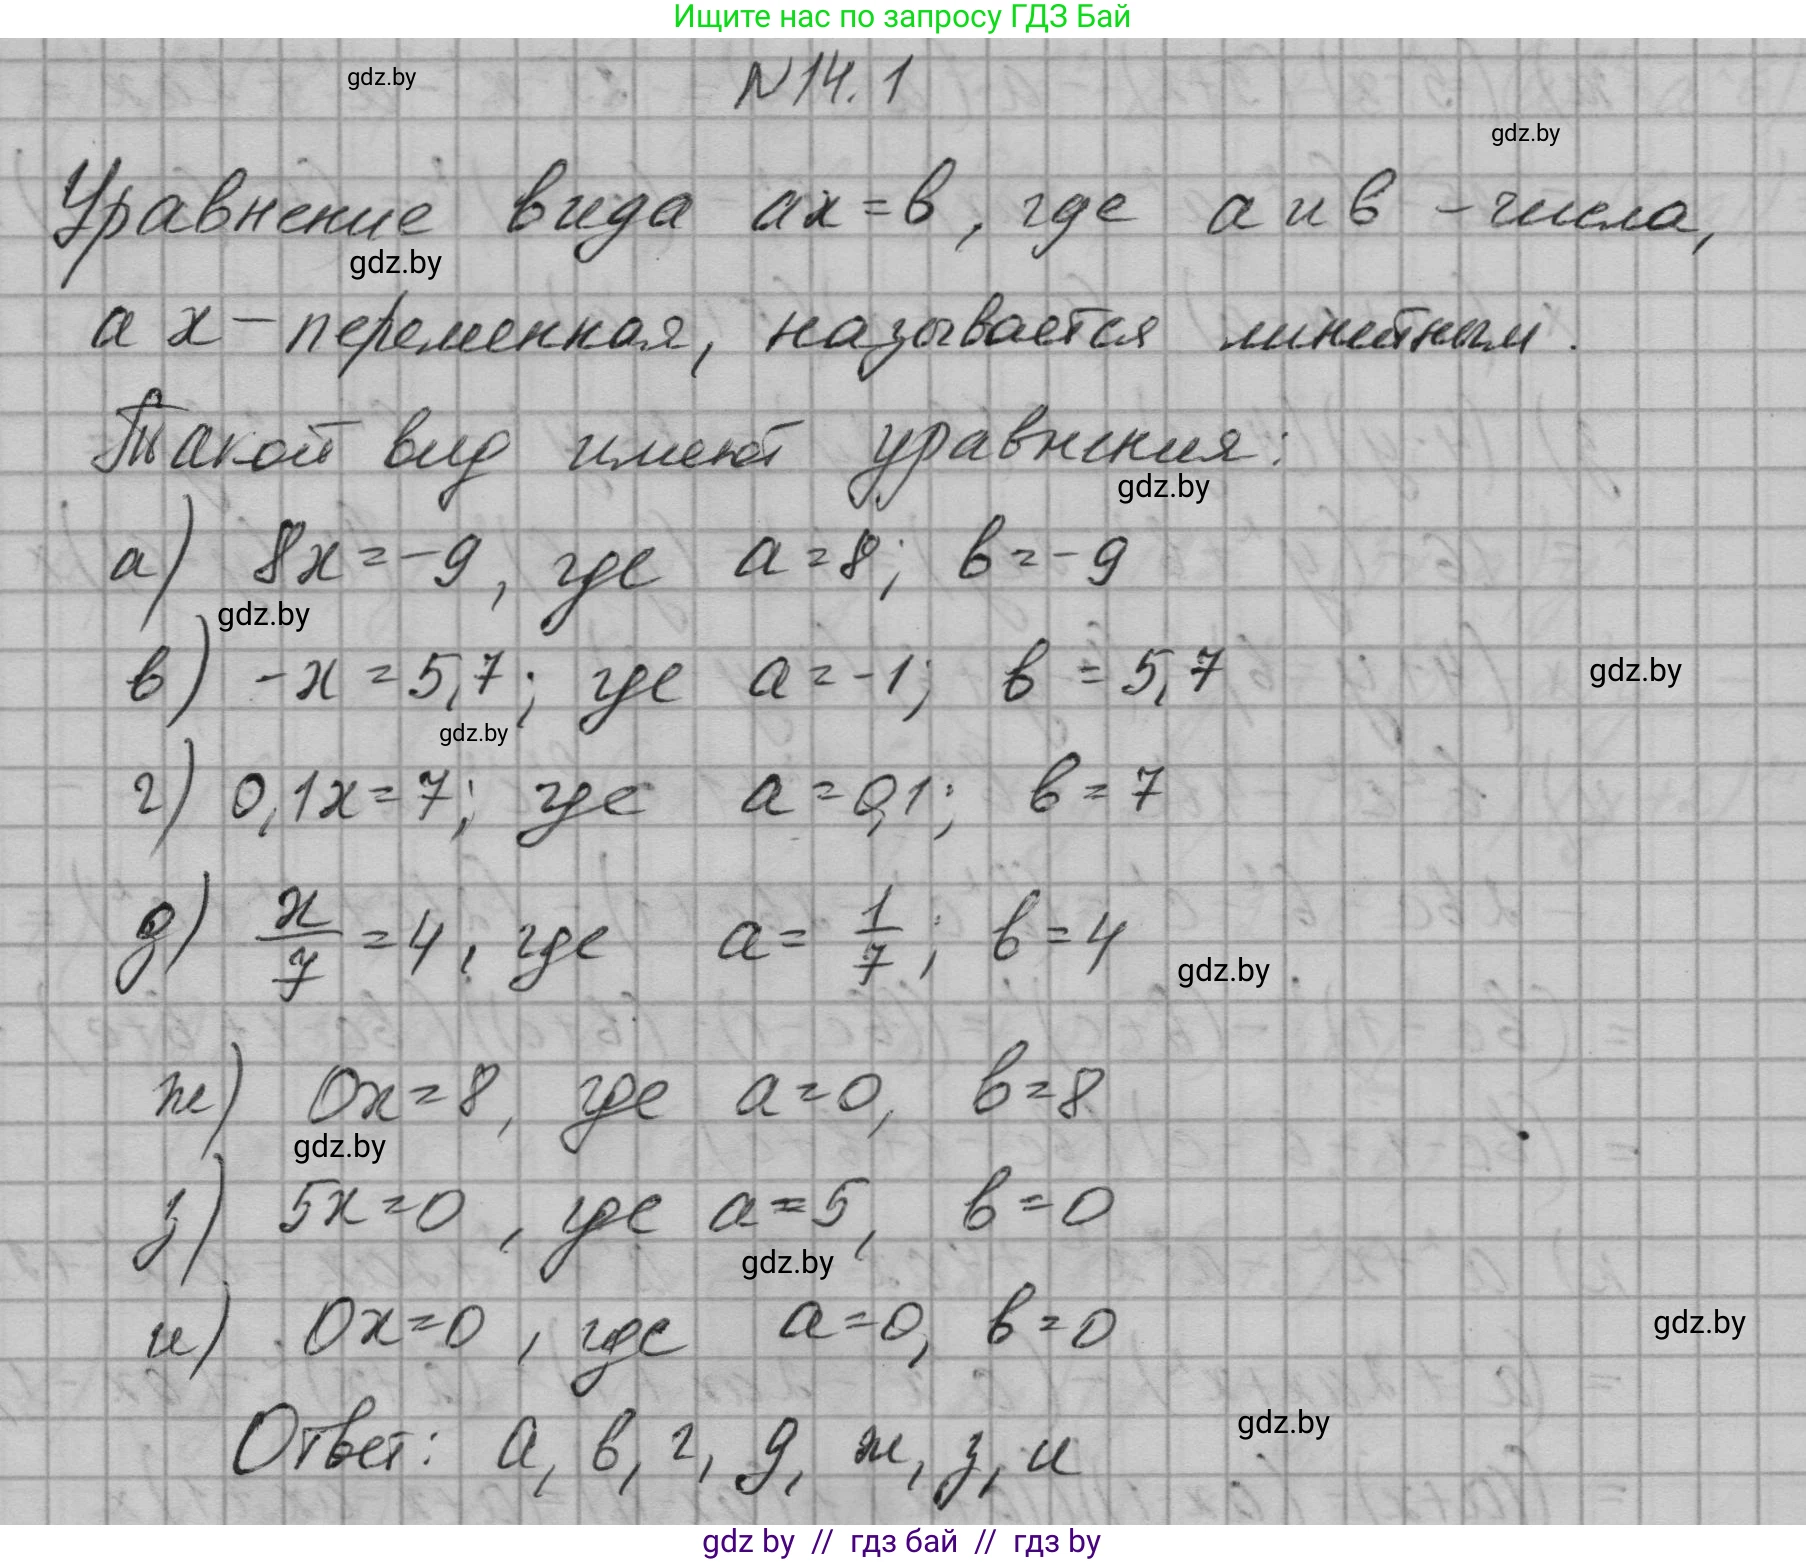 Ищите нас по запросу ГДЗ Бай
gdz.by
N14.1
gdz.by
Уравнение вида ax=b, где a и b - числа,
gdz.by
а x - переменная, называется линейным.
Такой вид имеют уравнения:
gdz.by
а) 8x=-9, где a=8; b=-9
gdz.by
в) -x=5,7; где a=-1; b=5,7
gdz.by
gdz.by
г) 0,1x=7; где a=0,1; b=7
д) x/7=4, где a=1/7; b=4
gdz.by
ж) 0x=8, где a=0, b=8
gdz.by
з) 5x=0, где a=5, b=0
gdz.by
и) 0x=0, где a=0, b=0
gdz.by
Ответ: а, в, г, д, ж, з, и
gdz.by
gdz by // гдз бай // гдз by